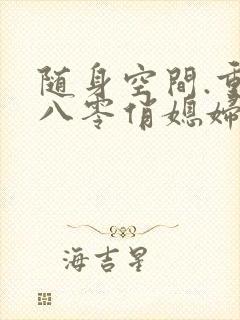 随身空間.重
八零俏媳婦
海吉星